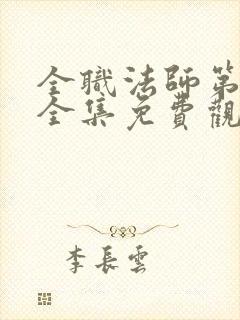 全職法師第
全集免費觀
李長雲